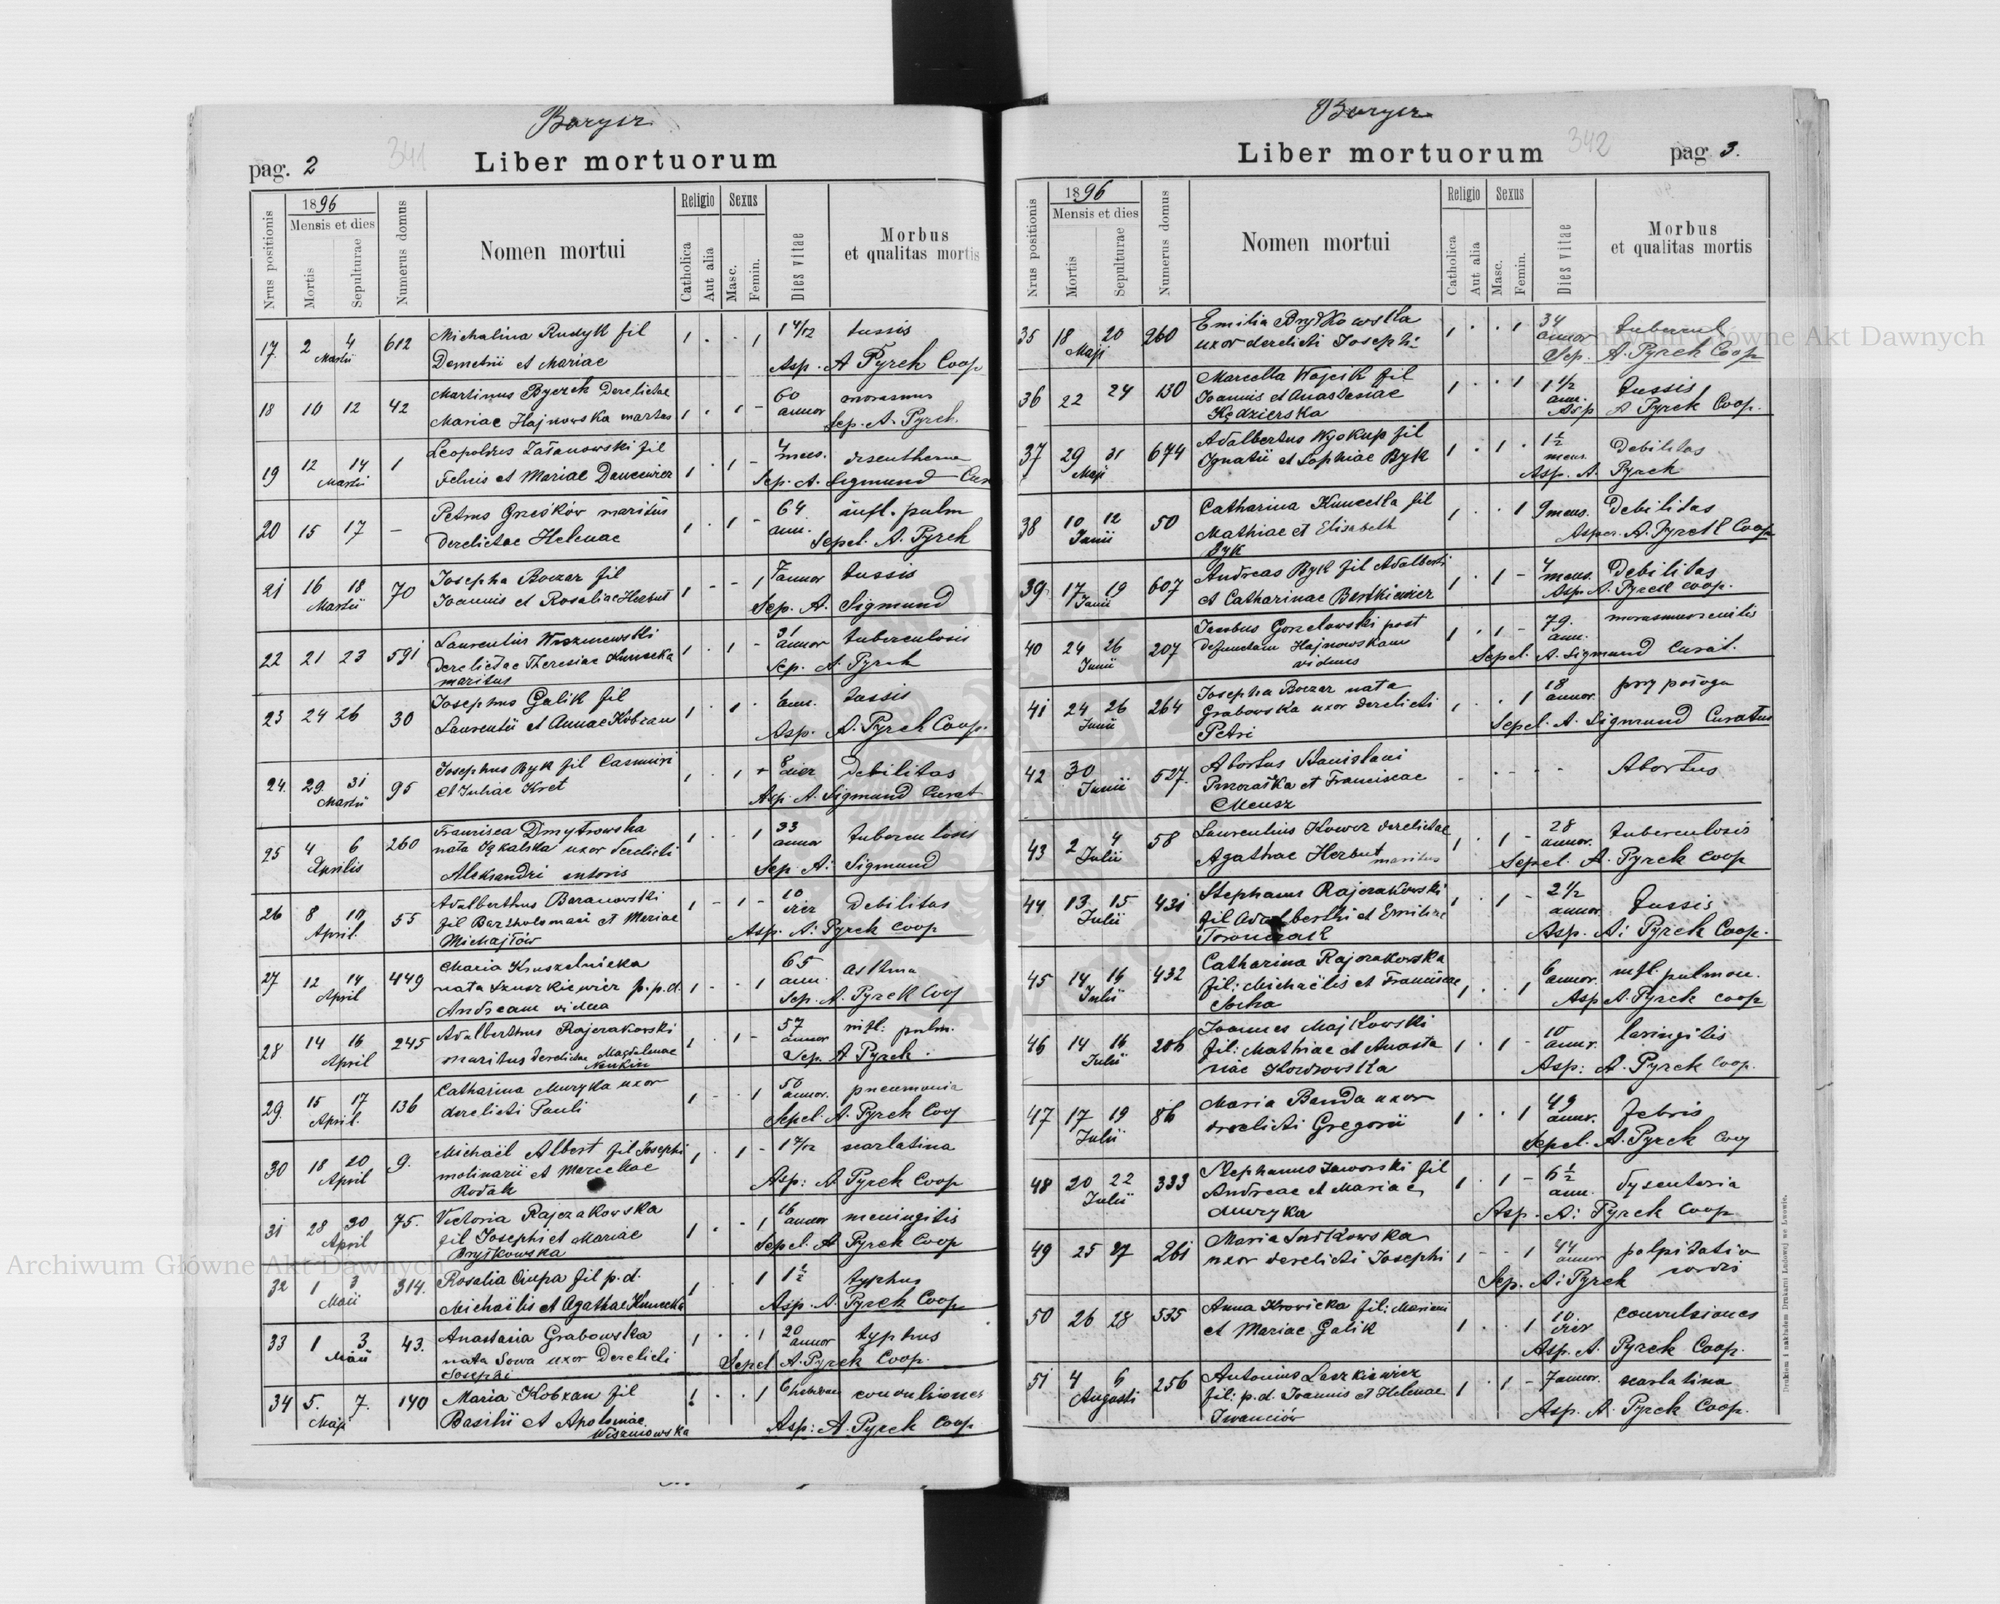 Borysz
pag. 2
341
Liber mortuorum
Nrus positionis
1896
Mensis et dies
Mortis
Sepulturae
Numerus domus
Nomen mortui
Religio
Catholica
Aut alia
Sexus
Masc.
Femin.
Dies vitae
Morbus
et qualitas mortis
17 2 4 Martii 612 Michalina Rudyk fil 1 . . 1 1 4/12 tussis
Demetrii et Mariae Asp. A Pyrek Coop
18 10 12 42 Martinus Byczek Derelictae 1 . 1 - 60 annor
Mariae Hajnowska Sep. A. Pyrek
19 12 14 Martii 1 Leopoldus fil 1 . 1 - 4 mens.
Felicis et Mariae Sep. A. Sigmund
20 15 17 - Petrus Grzeków maritus 1 . 1 - 64 ann. infl. pulm
Derelictae Helenae Sepel. A. Pyrek
21 16 18 Martii 70 Josepha Boczar fil 1 - - 1 7 annor tussis
Joannis et Rosaliae Herbut Sep. A. Sigmund
22 21 23 591 Laurentius 1 . 1 - 31 annor tuberculosis
derelictae Theresiae Kunecka Sep. A. Pyrek
maritus
23 24 26 30 Josephus Galik fil 1 . 1 . tussis
Laurentii et Annae Kobzan Asp. A. Pyrek Coop.
24. 29 31 Martii 95 Josephus Byk fil Casimiri 1 . 1 8 dier debilitas
et Juliae Kret Asp. A. Sigmund Curat
25 4 6 Aprilis 260 Francisca Dmytrowska 1 . . 1 33 annor tuberculosis
nata uxor derelicti Sep. A. Sigmund
Aleksandri
26 8 10 April. 55 Adalberthus Baranowski 1 - 1 - 10 dier Debilitas
fil Bartholomaei et Mariae Asp. A. Pyrek Coop
Michajłów
27 12 14 April 449 Maria Kruszelnicka 1 . . 1 65 ann. asthma
nata p.p.d. Sep. A. Pyrek Coop
Andream vidua
28 14 16 April 245 Adalberthus Rajzakowski 1 . 1 - 57 annor infl: pulm.
maritus derelictae Magdalenae Sep. A Pyrek.
29. 15 17 April. 136 Catharina Muryka uxor 1 - . 1 50 annor. pneumonia
derelicti Pauli Sepel. A. Pyrek Coop
30 18 20 April 9. Michaël Albert fil Josephi 1 . 1 - scarlatina
molinarii et Asp: A Pyrek Coop
Rodak
31 28 30 April 75. Victoria Rajzakowska 1 . - 1 16 annor meningitis
fil Josephi et Mariae Sepel. A Pyrek Coop
Bryłkowska
32 1 3 Maii 314. Rosalia Ciupa fil p.d. 1 . . 1 1 1/2 typhus
Michaëlis et Agathae Kunecka Asp. A. Pyrek Coop
33 1 3 Maii 43. Anastasia Grabowska 1 . . 1 20 annor typhus
nata Sowa uxor Derelicti Sepel A. Pyrek Coop.
Josephi
34 5. 7. Maji 140 Maria Kobzan fil 1 . . 1 convulsiones
Basilii et Apoloniae Asp: A. Pyrek Coop
Wiszniowska
Borysz
Liber mortuorum
342
pag 3.
Nrus positionis
1896
Mensis et dies
Mortis
Sepulturae
Numerus domus
Nomen mortui
Religio
Catholica
Aut alia
Sexus
Masc.
Femin.
Dies vitae
Morbus
et qualitas mortis
35 18 20 Maji 260 Emilia Bryłkowska 1 . . 1 34 annor tubercul
uxor derelicti Josephi Sep. A. Pyrek Coop
36 22 24 130 Marcella Wojcik fil 1 . . 1 1 1/2 ann. tussis
Joannis et Anastasiae Asp A Pyrek Coop.
Kędzierska
37 29 31 Maji 674 Adalbertus Wyokup fil 1 . 1 . 1 1/2 mens. Debilitas
Ignatii et Sophiae Byk Asp. A. Pyrek
38 10 12 Junii 50 Catharina Kunecka fil 1 . . 1 9 mens. Debilitas
Mathiae et Elisabeth Asper. A. Pyrek Coop
Byk
39. 17 19 Junii 607 Andreas Byk fil Adalberti 1 . 1 - 4 mens. Debilitas
et Catharinae Bartkiewicz Asp A. Pyrek coop.
40 24 26 Junii 207 Jacobus Gorzelowski post 1 . 1 - 79. ann.
defunctam Hajnowskam Sepel. A. Sigmund Curat.
viduus
41 24 26 Junii 264 Josepha Boczar nata 1 . . 1 18 annor.
Grabowska uxor derelicti Sepel. A. Sigmund Curatus
Petri
42 30 Junii 527. Abortus Stanislai - - - - Abortus
et Franciscae
43 2 4 Julii 58 Laurentius Kowcz derelictae 1 . 1 - 28 annor. tuberculosis
Agathae Herbut maritus Sepel. A. Pyrek coop
44 13 15 Julii 431 Stephanus Rajzakowski 1 . 1 - 2 1/2 annor tussis
fil Adalberthi et Emiliae Asp. A: Pyrek Coop.
45 14 16 Julii 432 Catharina Rajzakowska 1 . . 1 6 annor. infl. pulmon.
fil: Michaëlis et Franciscae Asp A. Pyrek coop
Socha
46 14 16 Julii 206 Joannes Majkowski 1 . 1 - 10 annor. laringitis
fil: Mathiae et Anasta Asp: A. Pyrek Coop.
siae
47 17 19 Julii 86 Maria Banda uxor 1 . . 1 49 annor. febris
derelicti Gregorii Sepel. A. Pyrek Coop
48 20 22 Julii 333 Stephanus Jaworski fil 1 . 1 - 6 1/2 ann. dysenteria
Andreae et Mariae Asp. A: Pyrek Coop
Muryka
49 25 27 261 Maria 1 - - 1 44 annor palpidatio
uxor derelicti Josephi Sep. A: Pyrek cordis
50 26 28 535 Anna Krovicka fil: Mariani 1 . . 1 10 dier convulsiones
et Mariae Galik Asp. A. Pyrek Coop.
51 4 6 Augusti 256 Antonius Leszkiewicz 1 . 1 - 7 annor. scarlatina
fil: p.d. Joannis et Helenae Asp. A. Pyrek Coop.
Iwanciów
Drukiem i nakładem Drukarni Ludowej we Lwowie.
Archiwum Główne Akt Dawnych
Archiwum Główne Akt Dawnych